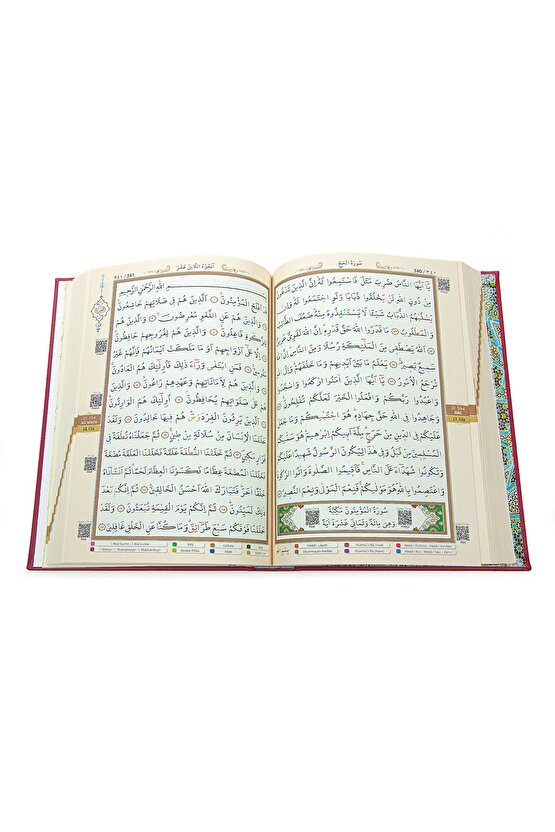 سورة الحج
340 / ٣٤٠
يَا أَيُّهَا النَّاسُ ضُرِبَ مَثَلٌ فَاسْتَمِعُوا لَهُ إِنَّ الَّذِينَ تَدْعُونَ
مِنْ دُونِ اللَّهِ لَنْ يَخْلُقُوا ذُبَابًا وَلَوِ اجْتَمَعُوا لَهُ وَإِنْ
يَسْلُبْهُمُ الذُّبَابُ شَيْئًا لَا يَسْتَنْقِذُوهُ مِنْهُ ضَعُفَ الطَّالِبُ
وَالْمَطْلُوبُ مَا قَدَرُوا اللَّهَ حَقَّ قَدْرِهِ إِنَّ اللَّهَ لَقَوِيٌّ عَزِيزٌ
اللَّهُ يَصْطَفِي مِنَ الْمَلَٰئِكَةِ رُسُلًا وَمِنَ النَّاسِ إِنَّ اللَّهَ
سَمِيعٌ بَصِيرٌ يَعْلَمُ مَا بَيْنَ أَيْدِيهِمْ وَمَا خَلْفَهُمْ وَإِلَى اللَّهِ
تُرْجَعُ الْأُمُورُ يَا أَيُّهَا الَّذِينَ آمَنُوا ارْكَعُوا وَاسْجُدُوا
وَاعْبُدُوا رَبَّكُمْ وَافْعَلُوا الْخَيْرَ لَعَلَّكُمْ تُفْلِحُونَ
وَجَاهِدُوا فِي اللَّهِ حَقَّ جِهَادِهِ هُوَ اجْتَبَٰيكُمْ وَمَا جَعَلَ
عَلَيْكُمْ فِي الدِّينِ مِنْ حَرَجٍ مِلَّةَ أَبِيكُمْ إِبْرَٰهِيمَ هُوَ سَمَّٰيكُمُ
الْمُسْلِمِينَ مِنْ قَبْلُ وَفِي هَٰذَا لِيَكُونَ الرَّسُولُ شَهِيدًا عَلَيْكُمْ
وَتَكُونُوا شُهَدَاءَ عَلَى النَّاسِ فَأَقِيمُوا الصَّلَٰوةَ وَآتُوا الزَّكَٰوةَ
وَاعْتَصِمُوا بِاللَّهِ هُوَ مَوْلَٰيكُمْ فَنِعْمَ الْمَوْلَىٰ وَنِعْمَ النَّصِيرُ
سُورَةُ الْمُؤْمِنُونَ مَكِّيَّةٌ
وَهِيَ مِائَةٌ وَثَمَانِيَ عَشْرَةَ آيَةً
22. Sûre
HAC
17. Cüz
الجزء الثامن عشر
٣٤١ / 341
بِسْمِ اللَّهِ الرَّحْمَٰنِ الرَّحِيمِ
قَدْ أَفْلَحَ الْمُؤْمِنُونَ الَّذِينَ هُمْ فِي صَلَاتِهِمْ خَاشِعُونَ
وَالَّذِينَ هُمْ عَنِ اللَّغْوِ مُعْرِضُونَ وَالَّذِينَ هُمْ
لِلزَّكَٰوةِ فَاعِلُونَ وَالَّذِينَ هُمْ لِفُرُوجِهِمْ حَافِظُونَ
إِلَّا عَلَىٰ أَزْوَاجِهِمْ أَوْ مَا مَلَكَتْ أَيْمَانُهُمْ فَإِنَّهُمْ غَيْرُ
مَلُومِينَ فَمَنِ ابْتَغَىٰ وَرَاءَ ذَٰلِكَ فَأُولَٰئِكَ هُمُ الْعَادُونَ
وَالَّذِينَ هُمْ لِأَمَانَاتِهِمْ وَعَهْدِهِمْ رَاعُونَ وَالَّذِينَ
هُمْ عَلَىٰ صَلَوَاتِهِمْ يُحَافِظُونَ أُولَٰئِكَ هُمُ الْوَارِثُونَ
الَّذِينَ يَرِثُونَ الْفِرْدَوْسَ هُمْ فِيهَا خَالِدُونَ وَلَقَدْ
خَلَقْنَا الْإِنْسَانَ مِنْ سُلَالَةٍ مِنْ طِينٍ ثُمَّ جَعَلْنَاهُ نُطْفَةً فِي
قَرَارٍ مَكِينٍ ثُمَّ خَلَقْنَا النُّطْفَةَ عَلَقَةً فَخَلَقْنَا الْعَلَقَةَ مُضْغَةً
فَخَلَقْنَا الْمُضْغَةَ عِظَامًا فَكَسَوْنَا الْعِظَامَ لَحْمًا ثُمَّ أَنْشَأْنَاهُ
خَلْقًا آخَرَ فَتَبَارَكَ اللَّهُ أَحْسَنُ الْخَالِقِينَ ثُمَّ إِنَّكُمْ بَعْدَ
ذَٰلِكَ لَمَيِّتُونَ ثُمَّ إِنَّكُمْ يَوْمَ الْقِيَٰمَةِ تُبْعَثُونَ وَلَقَدْ
خَلَقْنَا فَوْقَكُمْ سَبْعَ طَرَائِقَ وَمَا كُنَّا عَنِ الْخَلْقِ غَافِلِينَ
18. Cüz